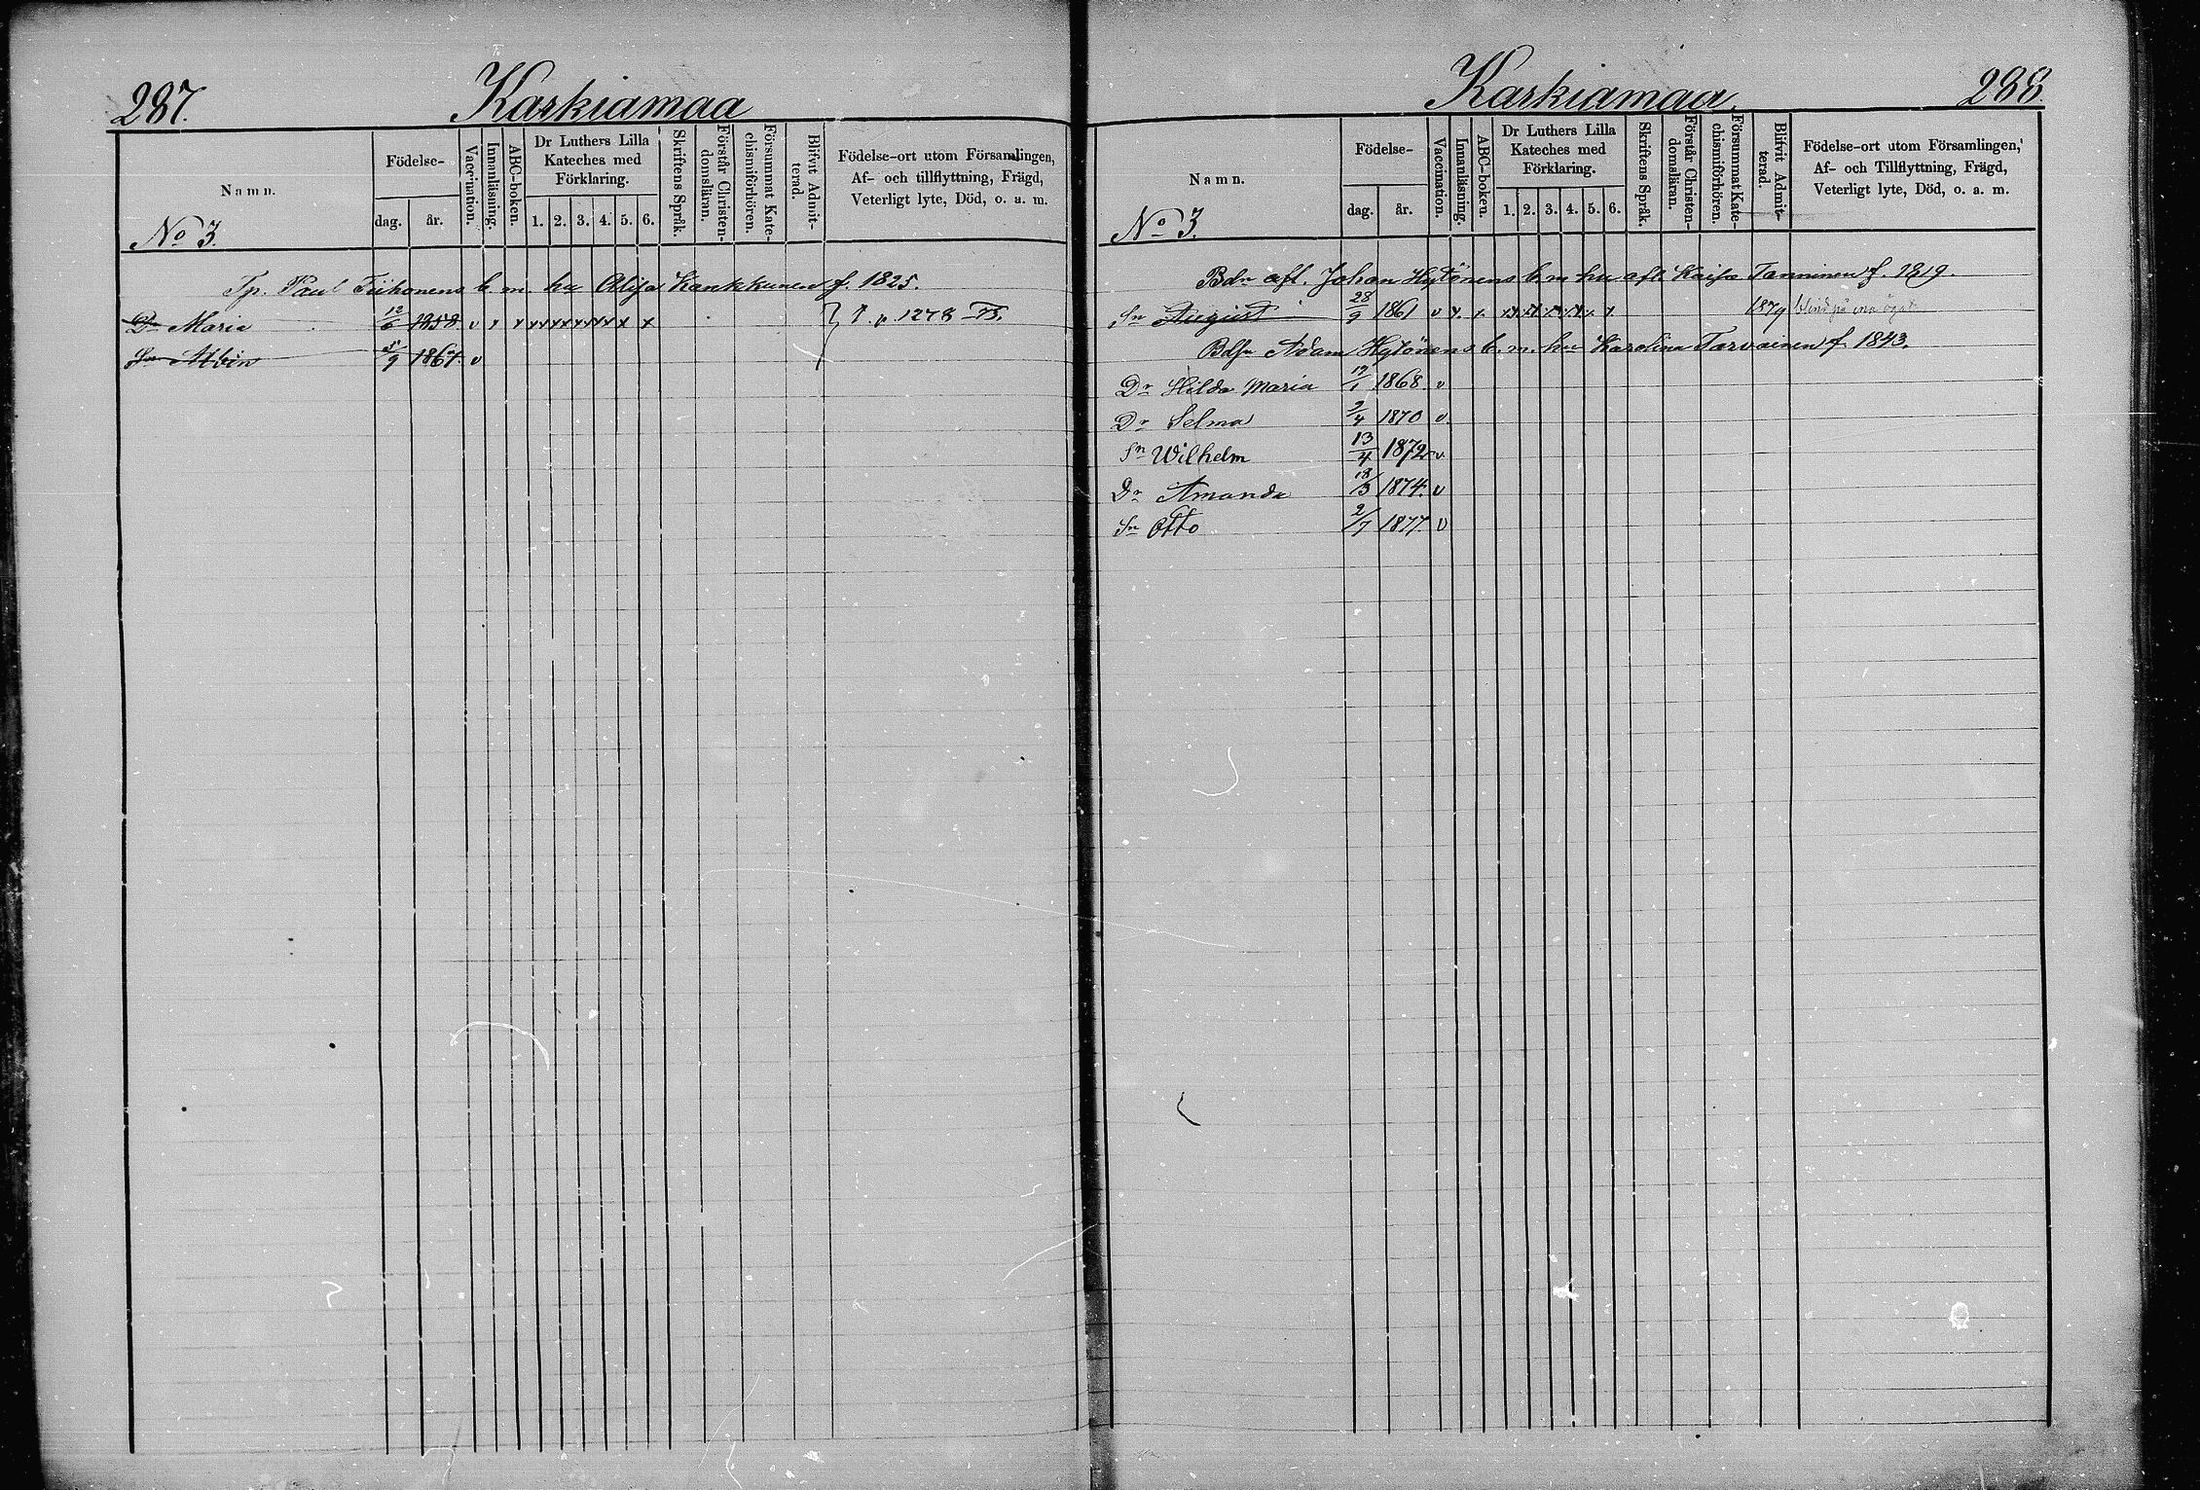 287. Karkiamaa
Namn.
Födelse-
dag. år.
Vaccination.
Innanläsning.
ABC-boken.
Dr Luthers Lilla
Kateches med
Förklaring.
1. 2. 3. 4. 5. 6.
Skriftens Språk.
Förstår Christen-
domsläran.
Försummat Kate-
chismiförhören.
Blifvit Admit-
terad.
Födelse-ort utom Församlingen,
Af- och tillflyttning, Frägd,
Veterligt lyte, Död, o. a. m.
No 3.
Tp. Paul Tiihonens b. m. hu Alisa Kankkunen f. 1825.
Dr Maria 12/6 1858 v x x x x x x x x x x x x x p. 1278 
Sn Albin 5/9 1867. v
Karkiamaa. 288.
Namn.
Födelse-
dag. år.
Vaccination.
Innanläsning.
ABC-boken.
Dr Luthers Lilla
Kateches med
Förklaring.
1. 2. 3. 4. 5. 6.
Skriftens Språk.
Förstår Christen-
domsläran.
Försummat Kate-
chismiförhören.
Blifvit Admit-
terad.
Födelse-ort utom Församlingen,
Af- och Tillflyttning, Frägd,
Veterligt lyte, Död, o. a. m.
No 3.
Bdn afl. Johan Hytönens b. m. hu afl. Kaisa Tanninen f. 1819.
Sn August 28/9 1861 v x. x. x x x x x x x x x x 1879 blind på ena ögat
Bdsn Adam Hytönens b. m. hu Karolina Tarvainen f. 1843.
Dr Hilda Maria 19/1 1868. v
Dr Selma 9/4 1870 v.
Sn Wilhelm 13/4 1872 v
Dr Amanda 18/3 1874. v
Sn Otto 2/7 1877. v